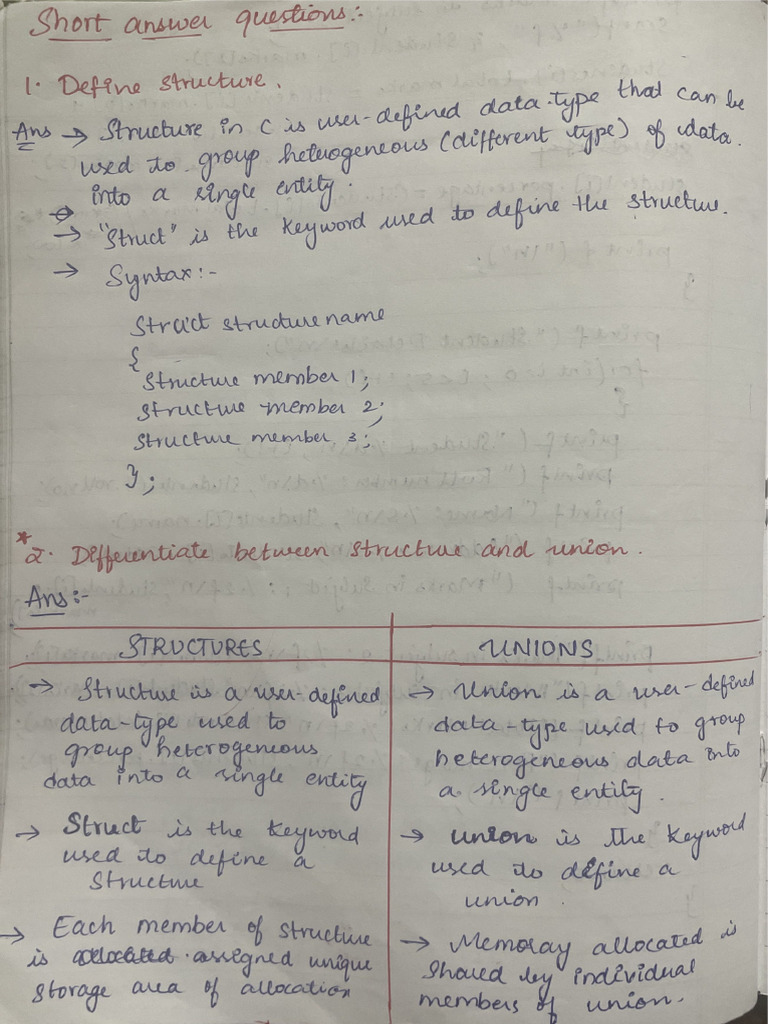 Short answer questions:-
1. Define structure.
Ans → Structure in C is user-defined data-type that can be
used to group heterogeneous (different type) of data.
into a single entity.
→ "Struct" is the keyword used to define the structure.
→ Syntax:-
Struct structure name
{
Structure member 1;
Structure member 2;
Structure member 3;
};
*2. Differentiate between structure and union.
Ans:-
STRUCTURES
→ Structure is a user-defined
data-type used to
group heterogeneous
data into a single entity
→ Struct is the keyword
used to define a
Structure
→ Each member of structure
is allocated assigned unique
storage area of allocation
UNIONS
→ Union is a user-defined
data-type used to group
heterogeneous data into
a single entity.
→ union is the keyword
used to define a
union.
→ Memoray allocated is
Shared by individual
members of union.